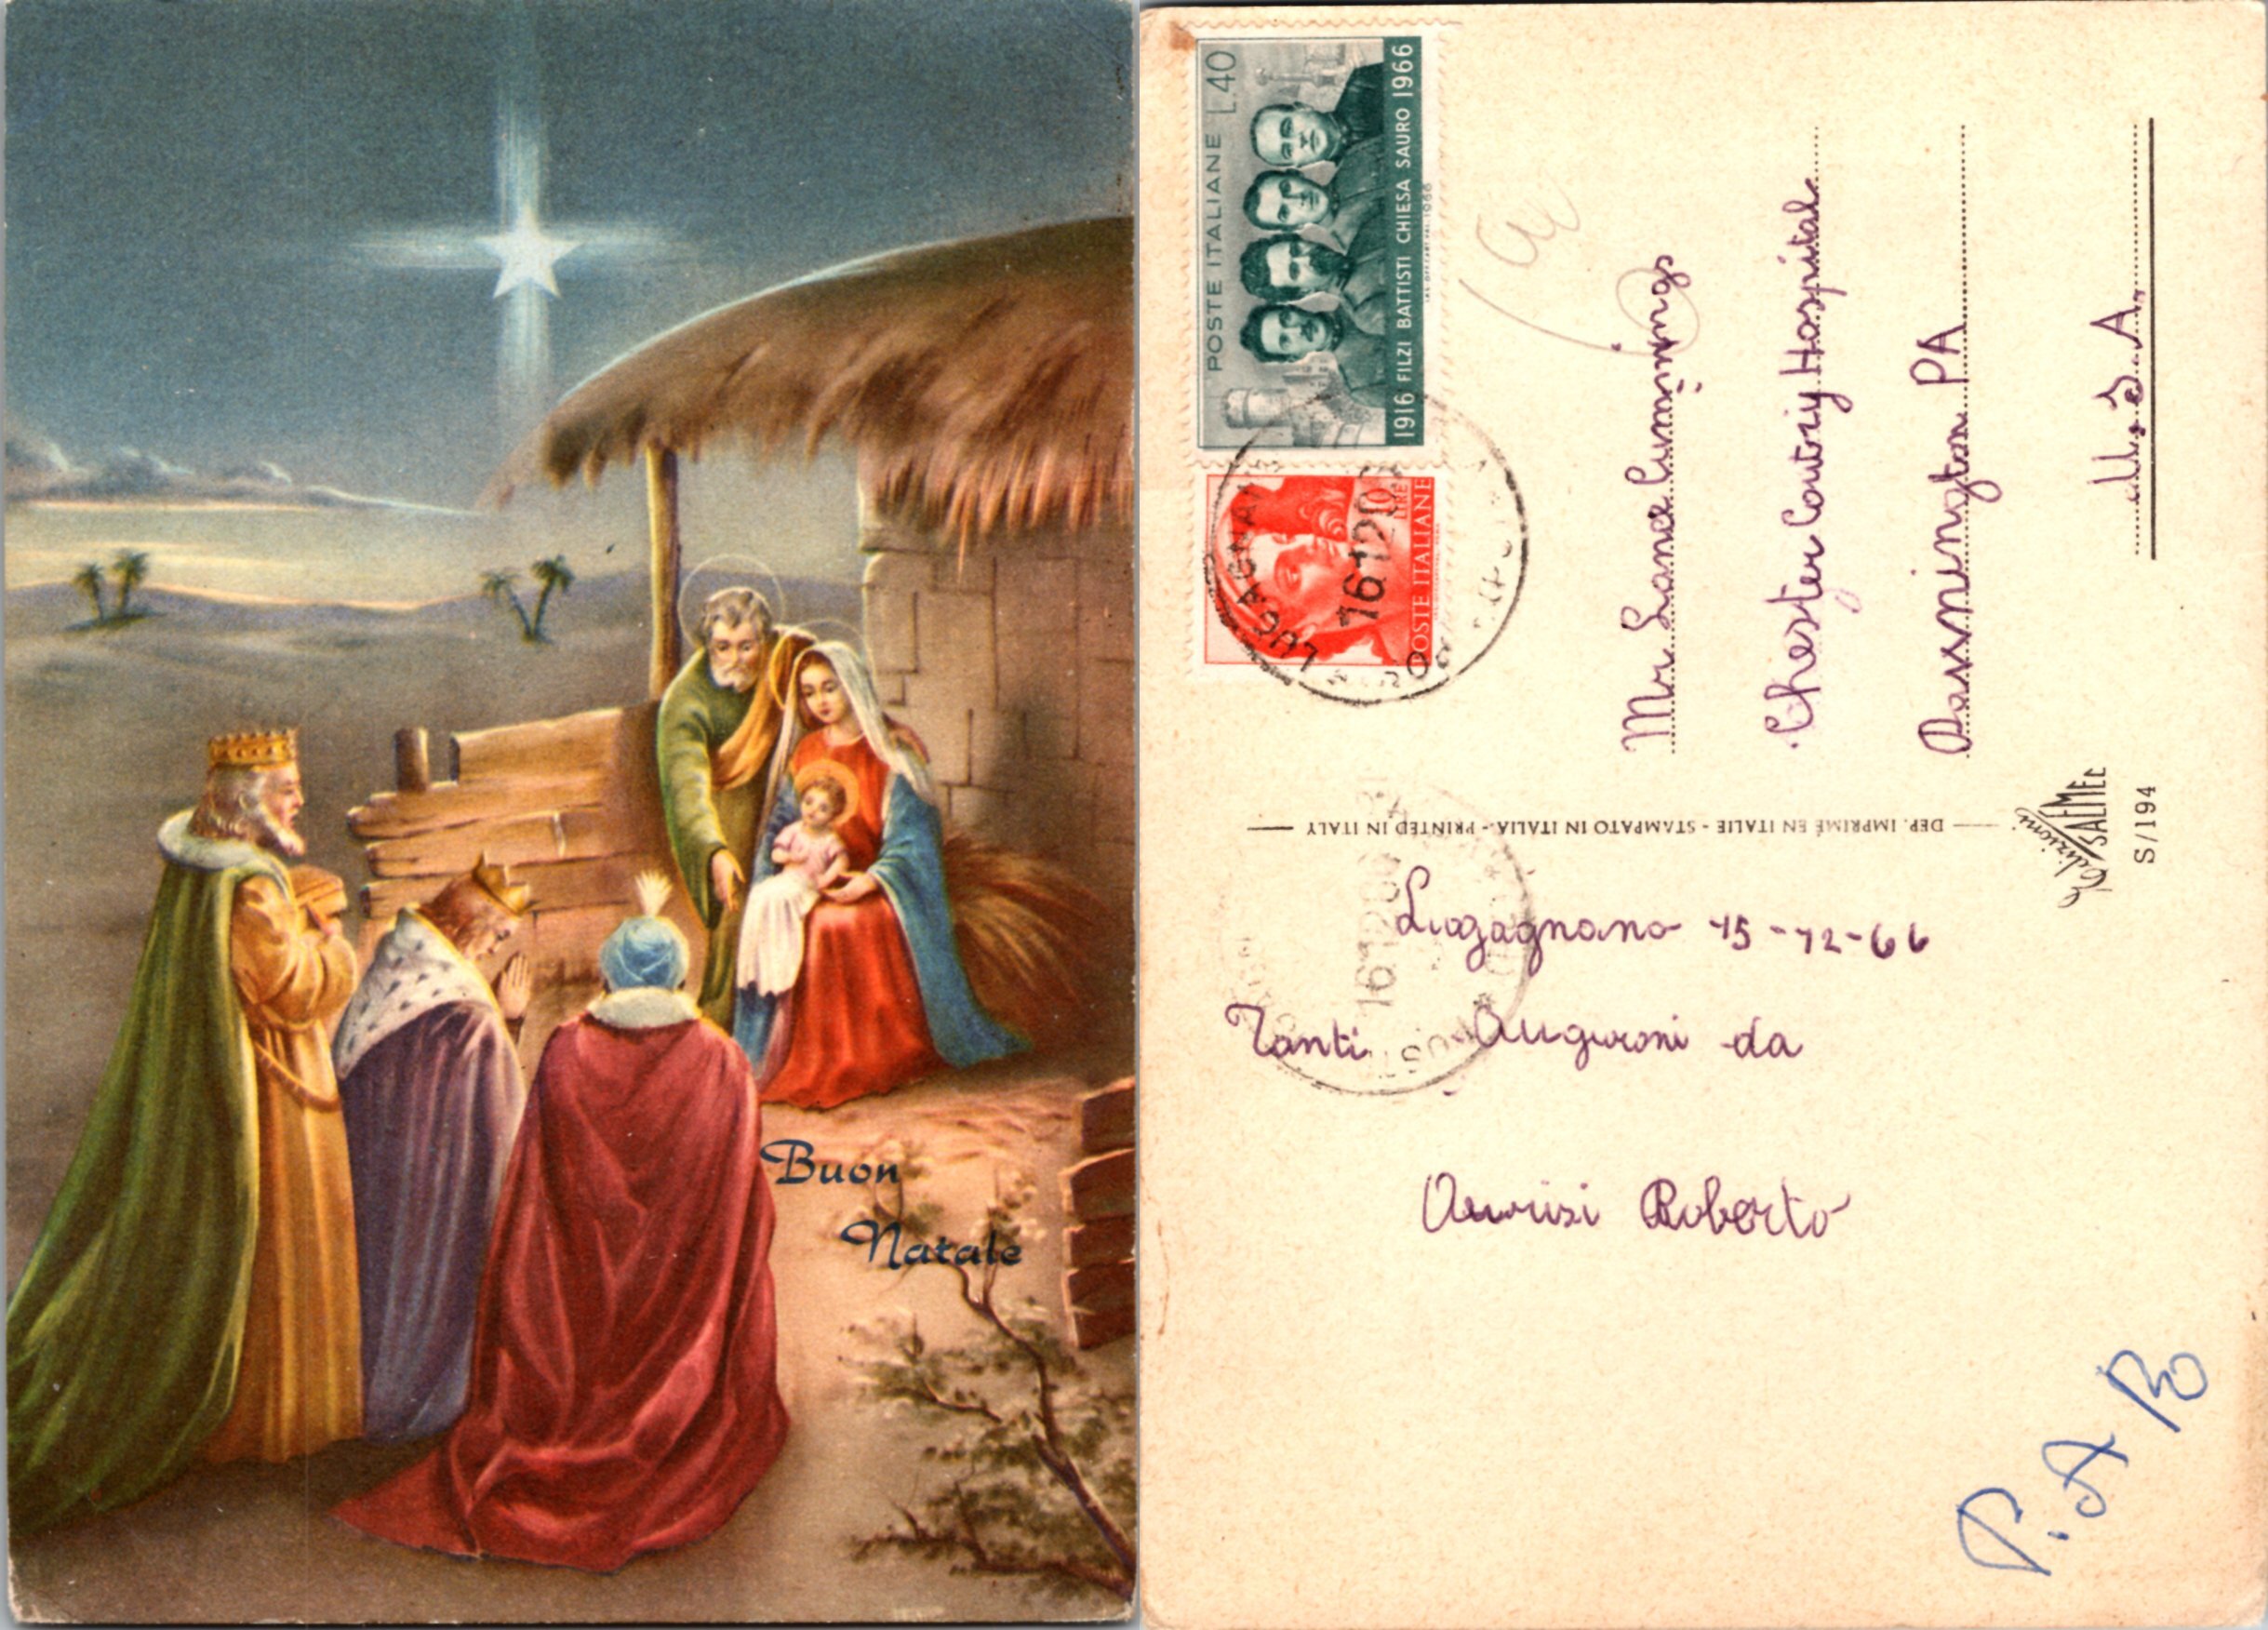 Buon
Natale
POSTE ITALIANE L.40
1916 FILZI BATTISTI CHIESA SAURO 1966
10
LIRE
POSTE ITALIANE
LUGAGNANO
16.12.
Mr. Lance Cummings
Chester County Hospital
PA
U.S.A.
DEP. IMPRIMÉ EN ITALIE - STAMPATO IN ITALIA - PRINTED IN ITALY
edizioni
SAEMEC
S/194
Lugagnano 15-12-66
Tanti Auguroni da
Roberto
P.A R